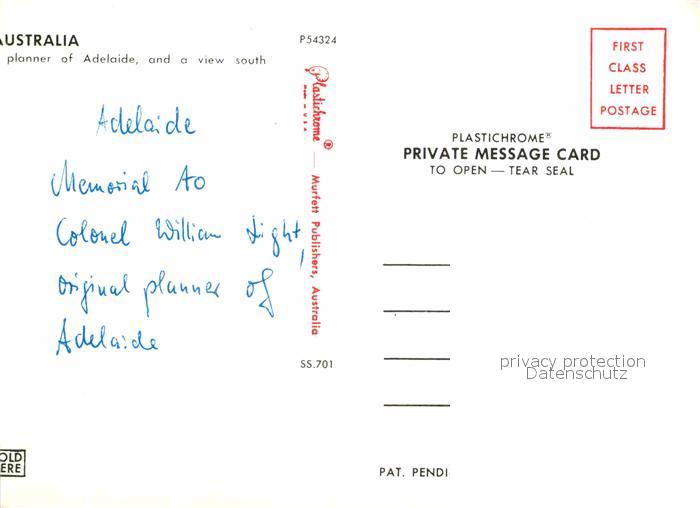 AUSTRALIA
planner of Adelaide, and a view south
P54324
Adelaide
Memorial to
Colonel William Light,
original planner of
Adelaide
Plastichrome ® — Murfett Publishers, Australia
SS.701
OLD
ERE
FIRST
CLASS
LETTER
POSTAGE
PLASTICHROME®
PRIVATE MESSAGE CARD
TO OPEN — TEAR SEAL
privacy protection
Datenschutz
PAT. PENDI